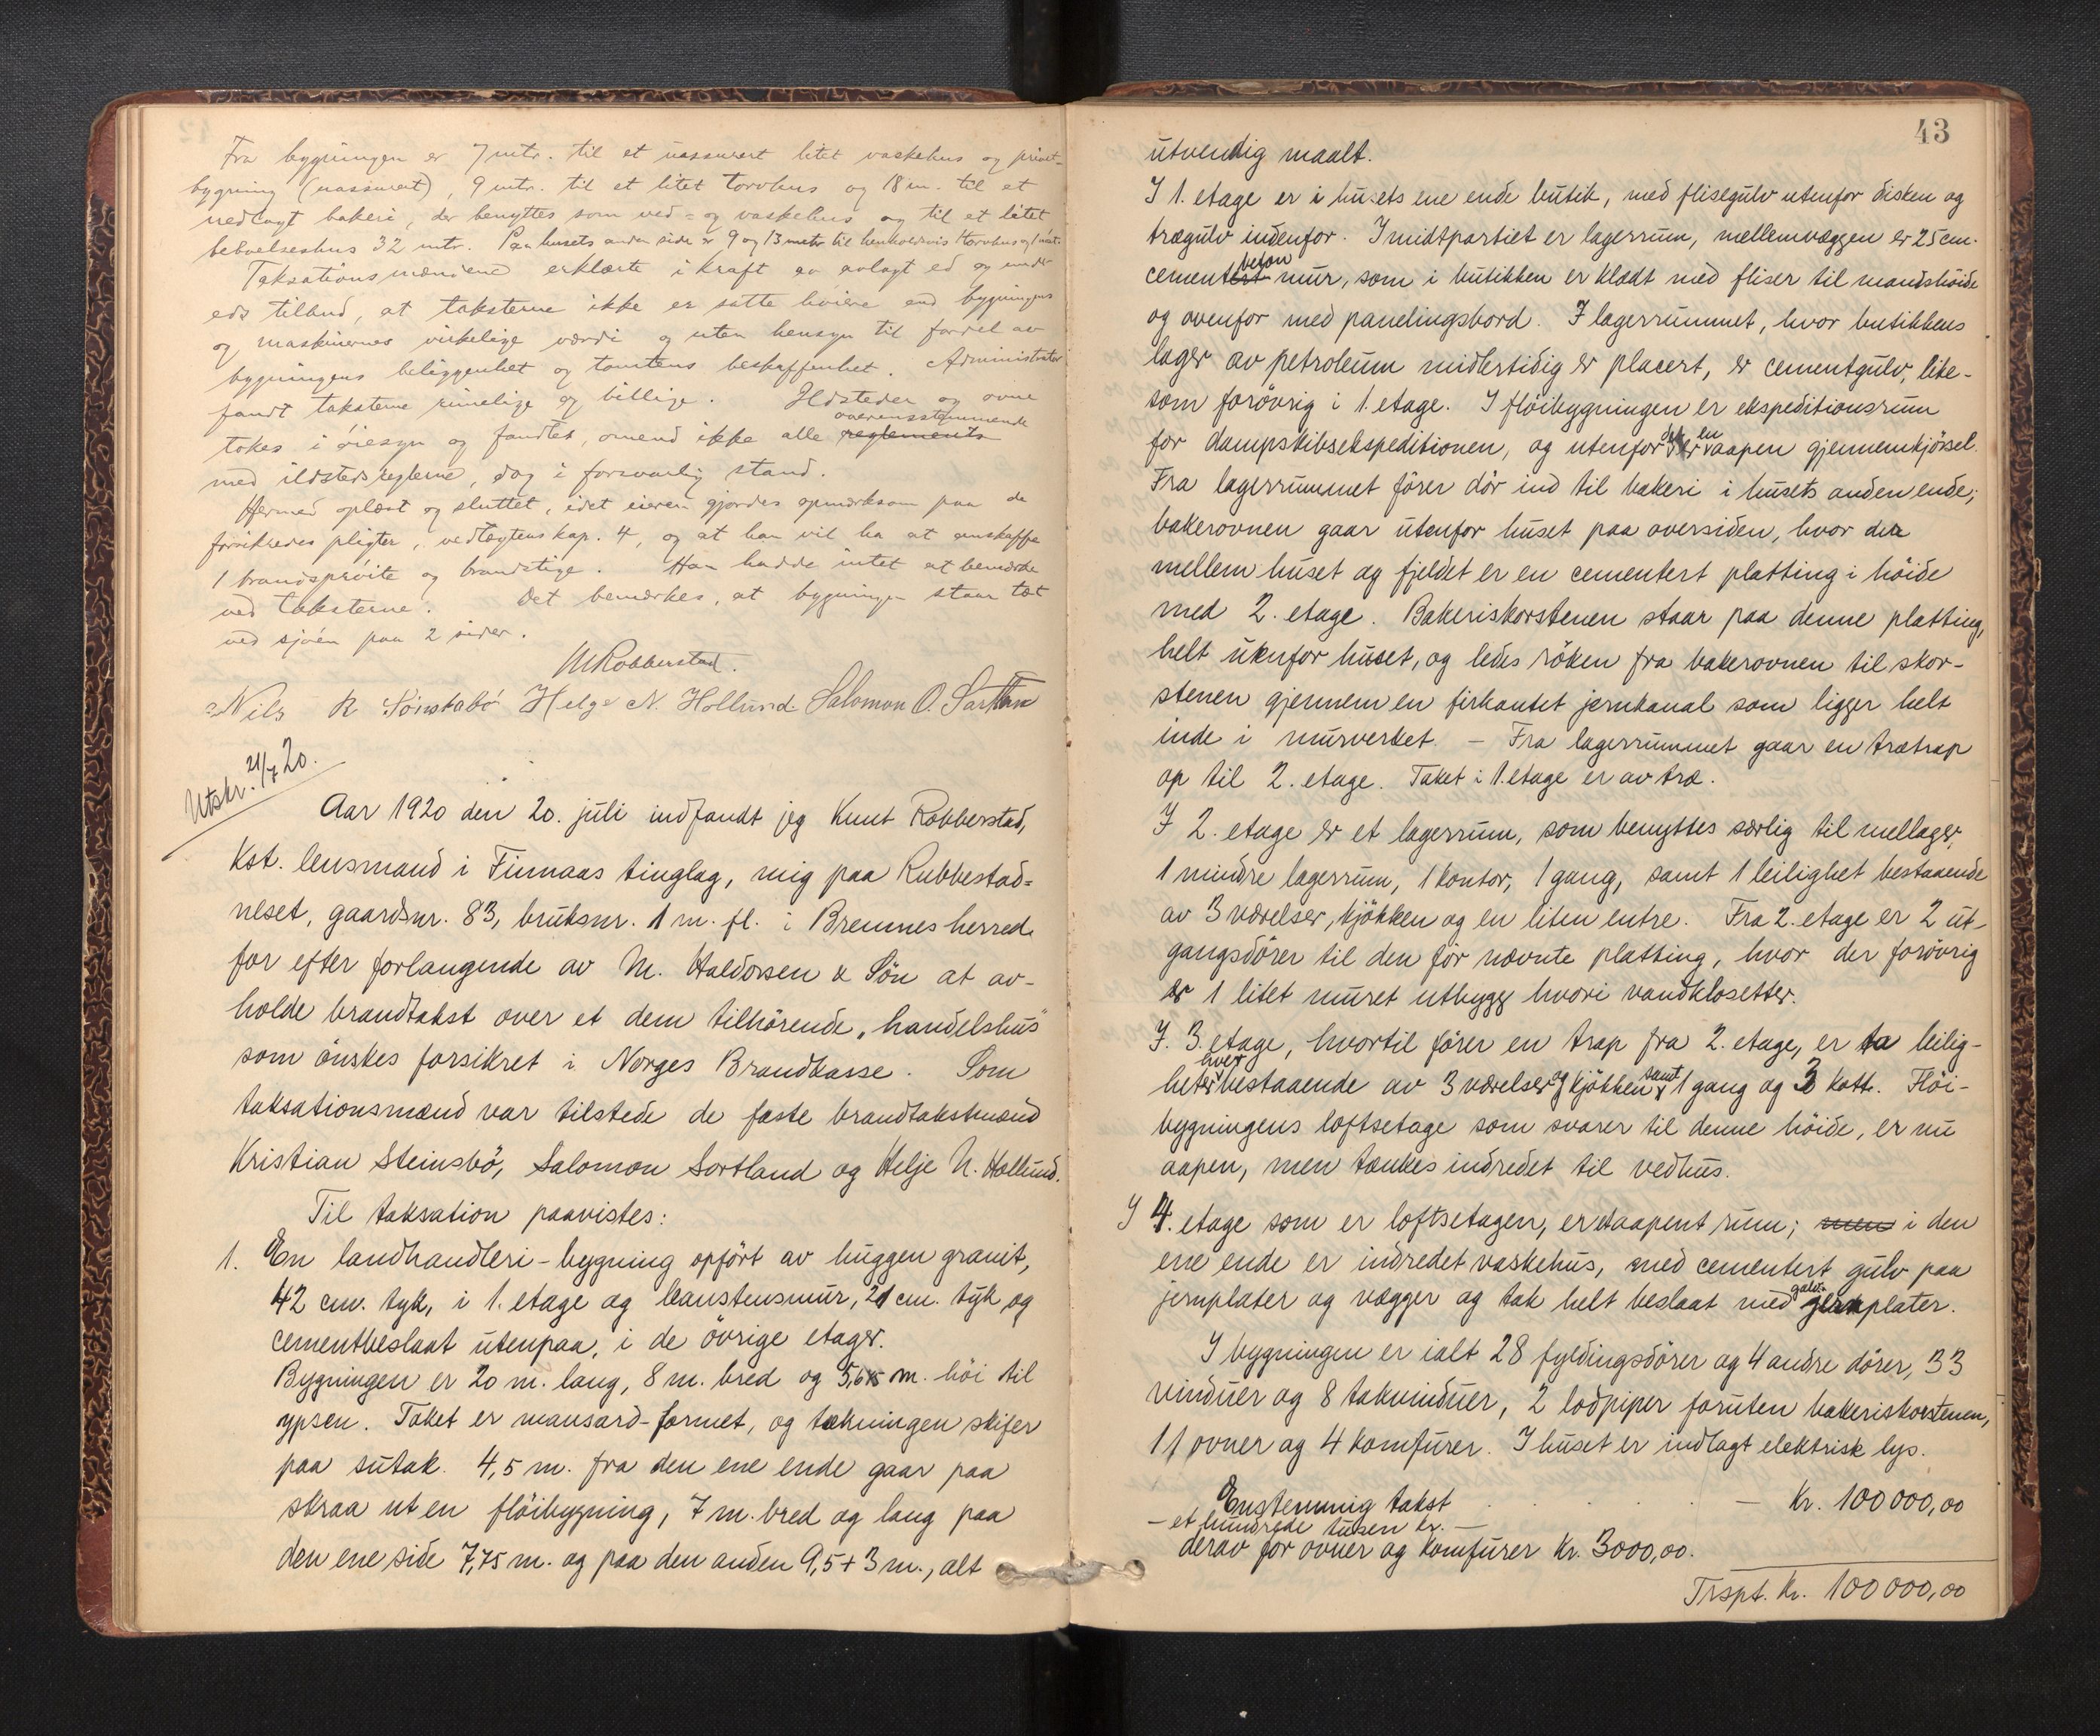 Fra bygningen er 7 mtr. til et uassurert litet vaskehus og privet-
bygning (uassurert), 9 mtr. til et litet torvhus og 18 m. til et
nedlagt bakeri, der benyttes som ved- og vaskehus og til et litet
beboelseshus 32 mtr. Paa husets anden side er 9 og 13 metr til henholdsvis torvhus og
Taksationsmændene erklærte i kraft av avlagt ed og under
eds tilbud, at taksterne ikke er satte høiere end bygningens
og maskinernes virkelige værdi og uten hensyn til fordel av
bygningens beliggenhet og tomtens beskaffenhet. Administrator
fandt taksterne rimelige og billige. Ildsteder og ovne
overensstemmende
tokes i øiesyn og fandtes, omend ikke alle reglements
med ildstedsreglerne, dog i forsvarlig stand.
Hermed oplæst og sluttet, idet eieren gjordes opmerksom paa de
forsikredes pligter, vedtægtens kap. 4, og at han vil ha at anskaffe
1 brandsprøite og brandstige. Han hadde intet at bemerke
ved taksterne. Det bemerkes, at bygningen staar tæt
ved sjøen paa 2 sider.
M Robberstad.
Nils R Sønstabø Helge N. Hollund. Salomon O. Sortland
Utskr. 21/7 20.
Aar 1920 den 20. juli indfandt jeg Knut Robberstad,
Kst. lensmand i Finnaas tinglag, mig paa Rubbestad=
neset, gaardsnr. 83, bruksnr. 1 m. fl. i Bremnes herred
for efter forlangende av M. Haldorsen & Søn at av-
holde brandtakst over et dem tilhørende „handelshus"
som ønskes forsikret i Norges Brandkasse. Som
taksationsmænd var tilstede de faste brandtakstmænd
Kristian Steinsbø, Salomon Sortland og Helje N. Hollund.
Til taksation paavistes:
1. En landhandleri-bygning opført av huggen granit,
42 cm. tyk, i 1. etage og leanstensmur, 21 cm. tyk og
cementbeslaat utenpaa, i de øvrige etager.
Bygningen er 20 m. lang, 8 m. bred og 5,675 m. høi til
ypsen. Taket er mansard-formet, og tækningen skifer
paa sutak. 4,5 m. fra den ene ende gaar paa
skraa ut en fløibygning, 7 m. bred og lang paa
den ene side 7,75 m. og paa den anden 9,5 + 3 m., alt
43
utvendig maalt.
I 1. etage er i husets ene ende butik, med flisegulv utenfor disken og
trægulv indenfor. I midtpartiet er lagerrum, mellemvæggen er 25 cm.
beton
cementert mur, som i butikken er klædt med fliser til mandshøide
og ovenfor med panelingsbord. I lagerrummet, hvor butikkens
lager av petroleum midlertidig er placert, er cementgulv, like-
som forøvrig i 1. etage. I fløibygningen er ekspeditionsrum
for dampskibsekspeditionen, og utenfor det er en aapen gjennemkjørsel.
Fra lagerrummet fører dør ind til bakeri i husets anden ende;
bakerovnen gaar utenfor huset paa oversiden, hvor der
mellem huset og fjeldet er en cementert platting i høide
med 2. etage. Bakeriskorstenen staar paa denne platting,
helt utenfor huset, og ledes røken fra bakerovnen til skor-
stenen gjennem en firkantet jernkanal som ligger helt
inde i murverket. – Fra lagerrummet gaar en trætrap
op til 2. etage. Taket i 1. etage er av træ.
I 2. etage er et lagerrum, som benyttes særlig til mellager,
1 mindre lagerrum, 1 kontor, 1 gang, samt 1 leilighet bestaaende
av 3 værelser, kjøkken og en liten entre. Fra 2. etage er 2 ut-
gangsdører til den før nævnte platting, hvor der forøvrig
er 1 litet muret utbygg hvori vandklosetter.
I. 3. etage, hvortil fører en trap fra 2. etage, er to leilig-
heter hver bestaaende av 3 værelser og kjøkken samt 1 gang og 3 kott. Fløi-
bygningens loftsetage som svarer til denne høide, er nu
aapen, men tænkes indredet til vedhus.
I 4. etage som er loftsetagen, er et aapent rum; men i den
ene ende er indredet vaskehus, med cementert gulv paa
jernplater og vægger og tak helt beslaat med galv. jernplater.
I bygningen er ialt 28 fyldingsdører og 4 andre dører, 33
vinduer og 8 takvinduer, 2 lodpiper foruten bakeriskorstenen,
11 ovner og 4 komfurer. I huset er indlagt elektrisk lys.
Enstemmig takst . . . . . – Kr. 100 000,00
– et hundrede tusen kr. –
derav for ovner og komfurer Kr. 3000,00.
Trspt. Kr. 100 000,00